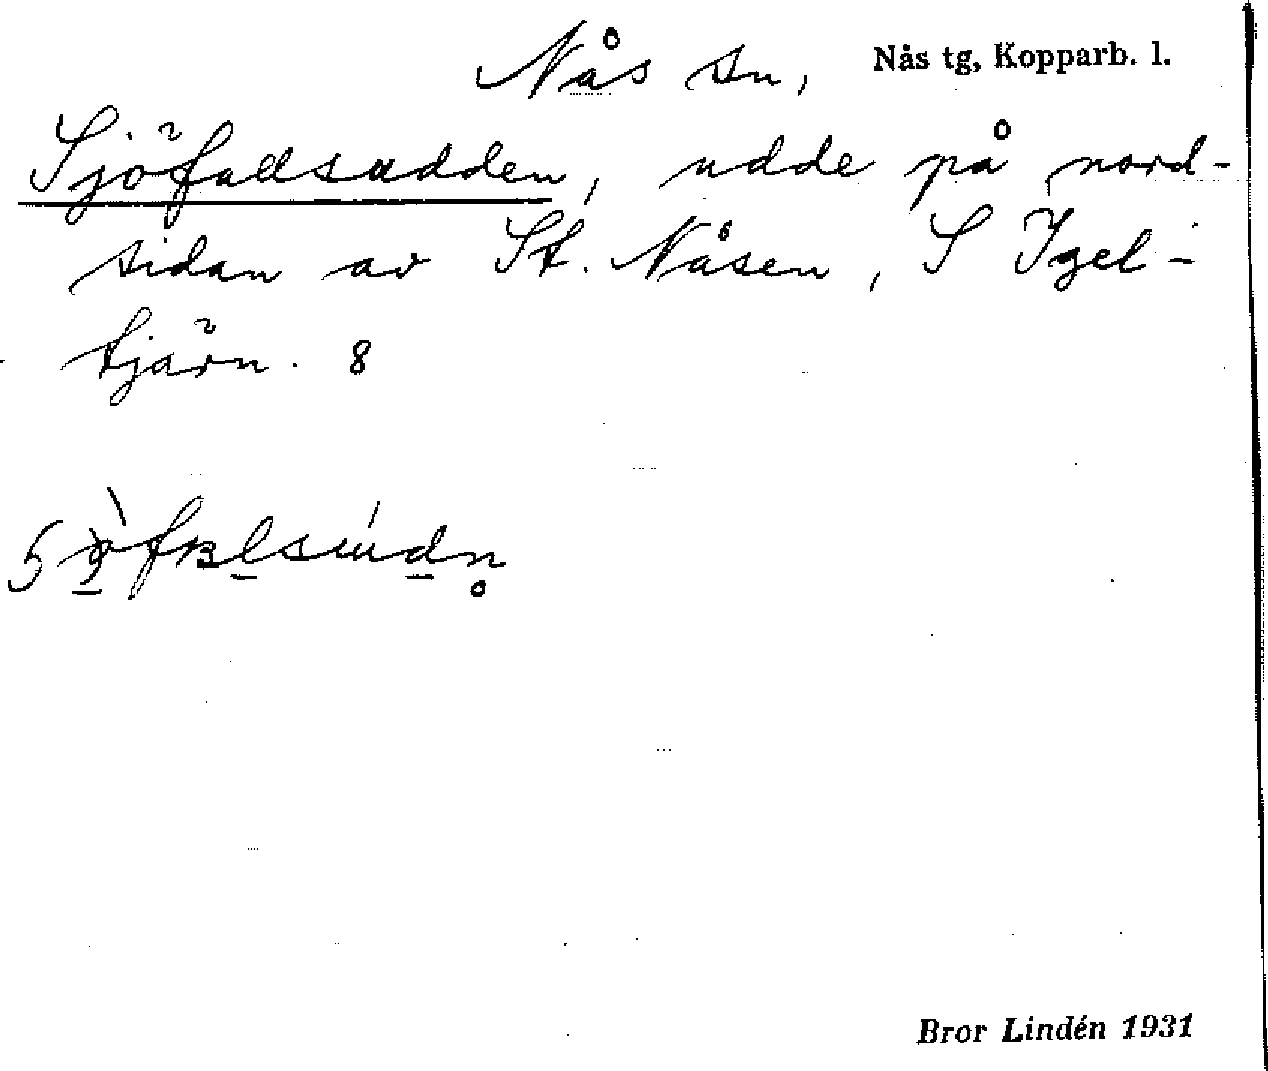 Nås sn, Nås tg, Kopparb. l.
Sjöfallsudden, udde på nord-
sidan av St. Nåsen, S Igel-
tjärn. 8
Bror Lindén 1931